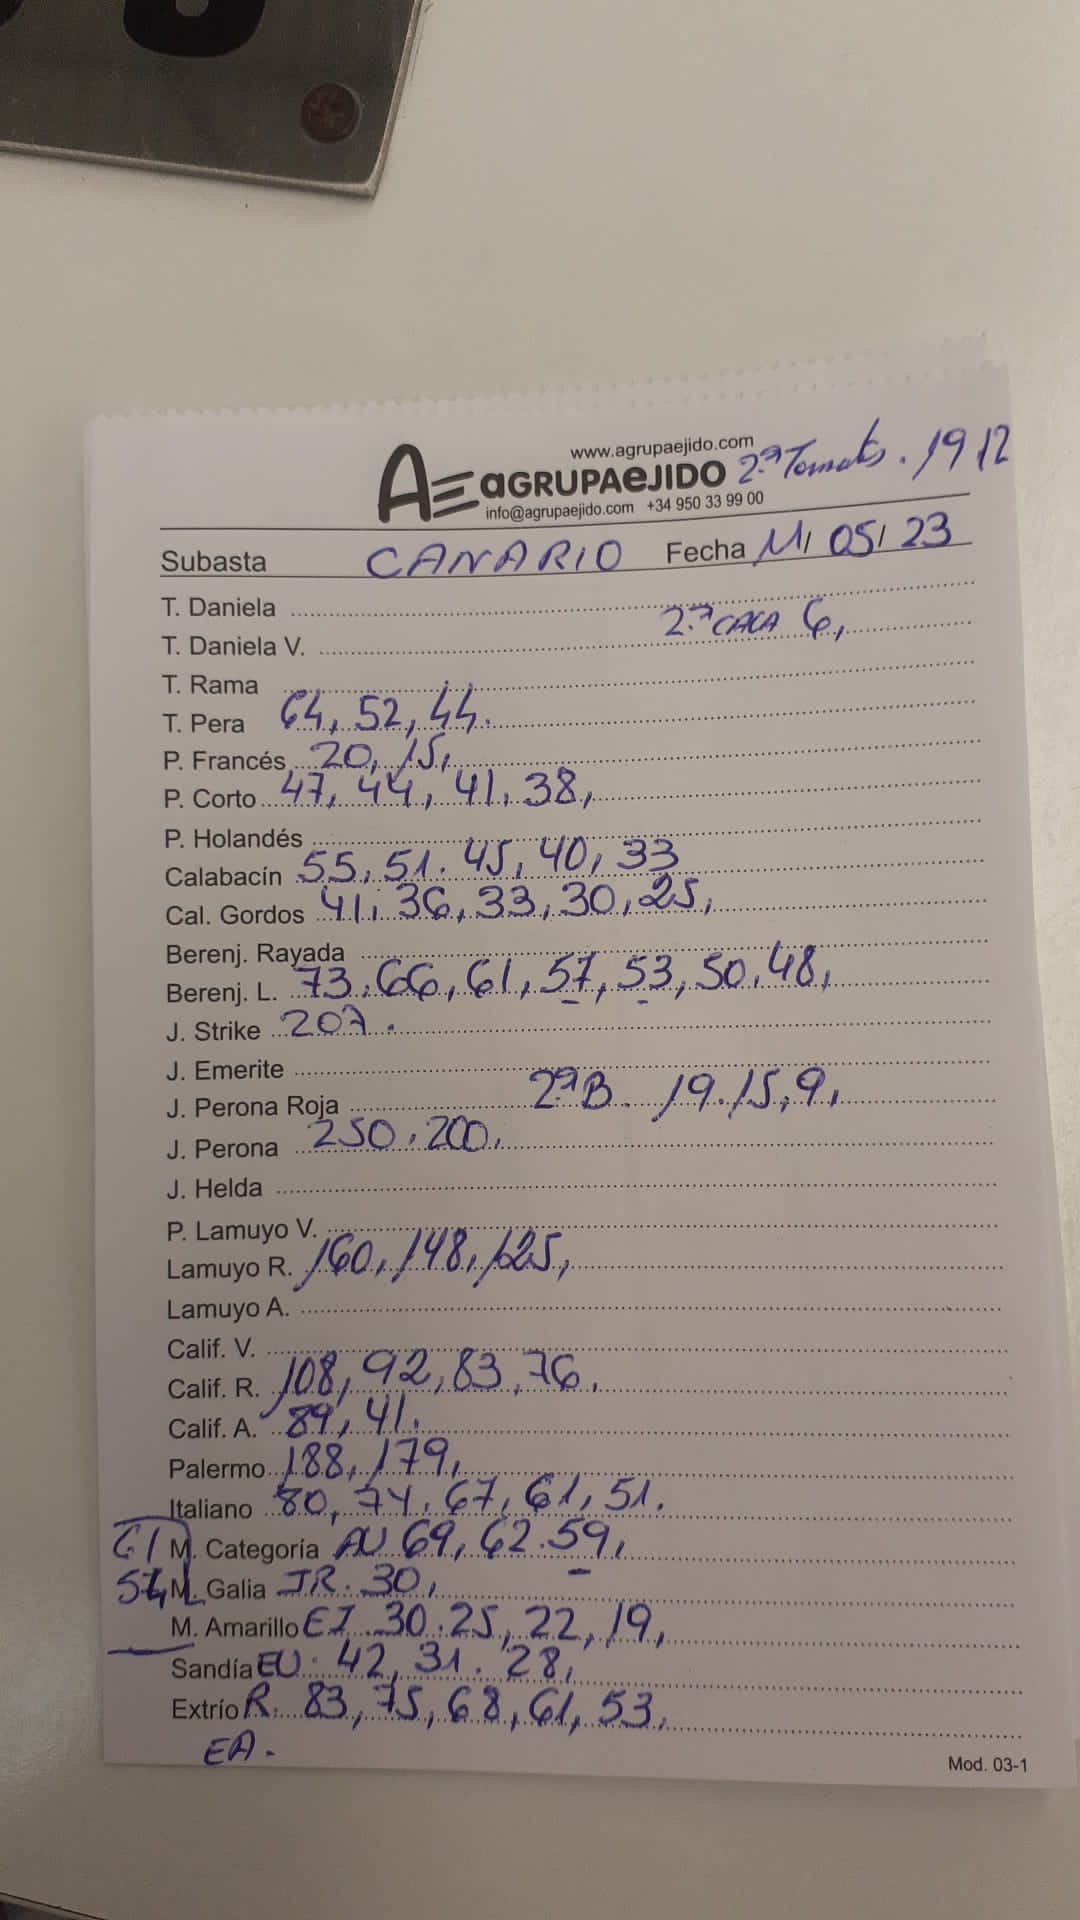 www.agrupaejido.com
AGRUPAEJIDO 2ª Tomates. 19 12
info@agrupaejido.com +34 950 33 99 00
Subasta CANARIO Fecha 11/ 05/ 23
T. Daniela
T. Daniela V. 2ª CACA 6,
T. Rama
T. Pera 64, 52, 44.
P. Francés 20, 15,
P. Corto 47, 44, 41, 38,
P. Holandés
Calabacín 55, 51. 45, 40, 33
Cal. Gordos 41, 36, 33, 30, 25,
Berenj. Rayada
Berenj. L. 73, 66, 61, 57, 53, 50, 48,
J. Strike 207.
J. Emerite
J. Perona Roja 2ª B. 19. 15, 9,
J. Perona 250, 200,
J. Helda
P. Lamuyo V.
Lamuyo R. 160, 148, 125,
Lamuyo A.
Calif. V.
Calif. R. 108, 92, 83, 76,
Calif. A. 89, 41.
Palermo 188, 179,
Italiano 80, 74, 67, 61, 51.
61 M. Categoría AU 69, 62. 59,
M. Galia JR. 30,
M. Amarillo EJ 30. 25, 22, 19,
Sandía EU. 42, 31. 28,
Extrío R. 83, 75, 68, 61, 53,
EA.
Mod. 03-1